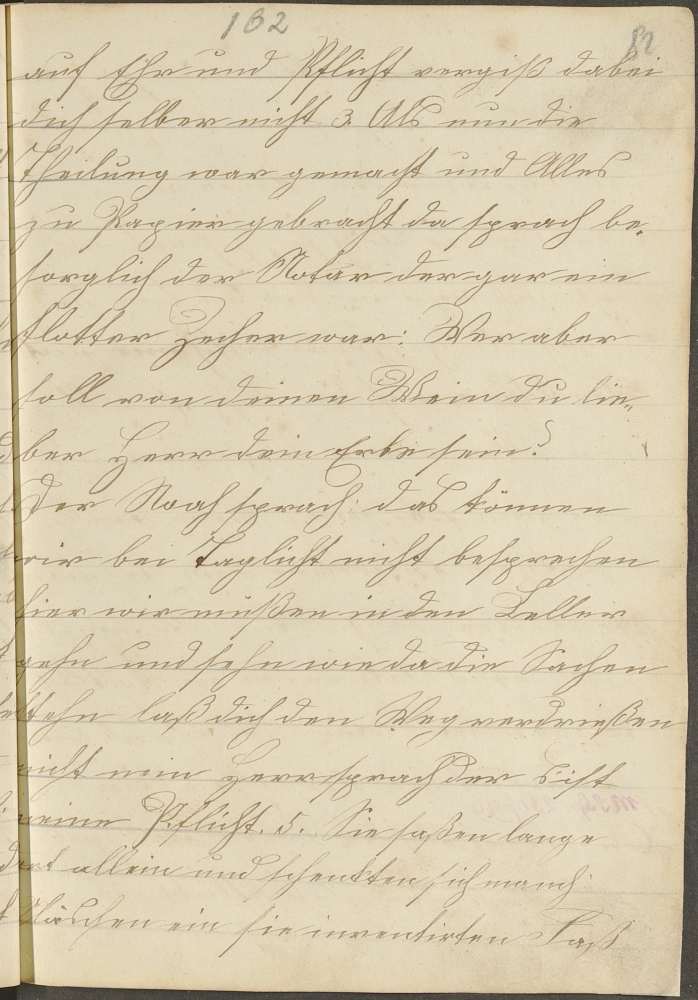 162
82
auf Ehr und Pflicht vergiß dabei
dich selber nicht 3. Als nun die
Theilung war gemacht und Alles
zu Papier gebracht da sprach be„
sorglich der Notar der gar ein
flotter Zecher war: Wer aber
soll von deinen Wein du lie„
ber Herr dein Erbe sein?
Der Noah sprach: das können
wir bei Taglicht nicht besprechen
hier wir müßen in den Keller
gehn und sehn wie da die Sachen
stehn laß dich den Weg verdrießen
nicht nein Herr sprach der s'ist
meine Pflicht. 5. Sie saßen lange
dort allein und schenkten sich manch
Gläschen ein sie inventirten Faß